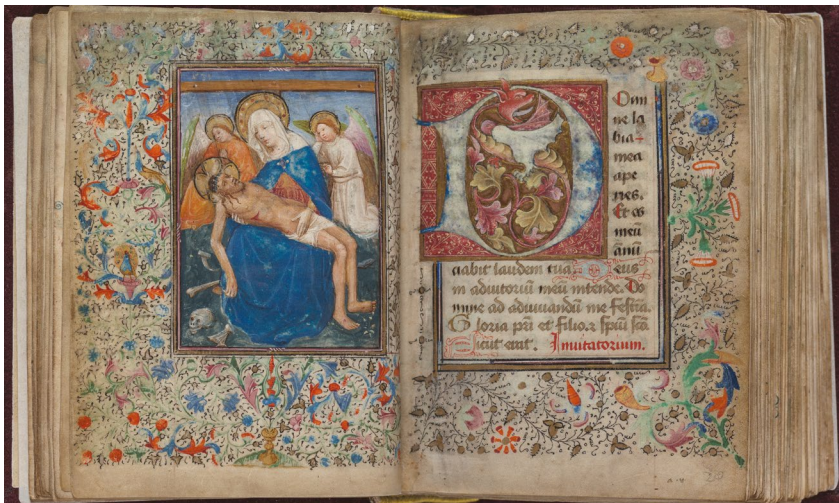 Domi
ne la
bia
mea
ape
ries.
Et os
meū
anū
ciabit laudem tuā. Deus
in adiutoriū meū intende. Do
mine ad adiuuandū me festina.
Gloria pri et filio. z spūi scō
Sicut erat. Inuitatorium.